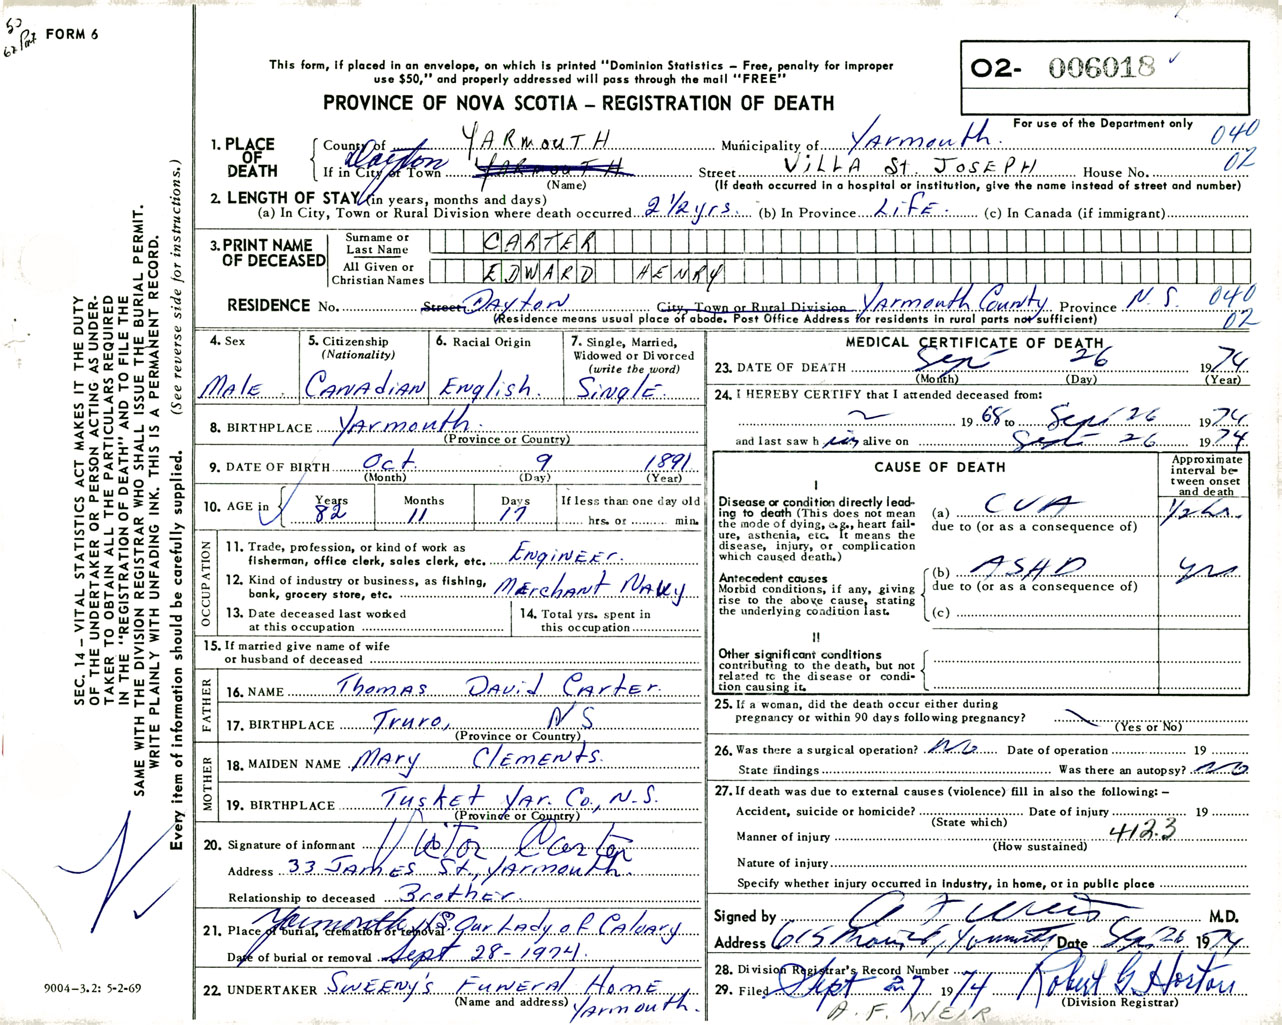 50
62 Port FORM 6
This form, if placed in an envelope, on which is printed "Dominion Statistics – Free, penalty for improper
use $50," and properly addressed will pass through the mail "FREE"
PROVINCE OF NOVA SCOTIA – REGISTRATION OF DEATH
O2- 006018
For use of the Department only
1. PLACE OF DEATH
County of YARMOUTH Municipality of Yarmouth. 040
If in City or Town Dayton YARMOUTH Street VILLA St. JOSEPH House No. 02
(Name) (If death occurred in a hospital or institution, give the name instead of street and number)
2. LENGTH OF STAY (in years, months and days)
(a) In City, Town or Rural Division where death occurred 2 1/2 yrs. (b) In Province LIFE. (c) In Canada (if immigrant)
3. PRINT NAME OF DECEASED
Surname or Last Name CARTER
All Given or Christian Names EDWARD HENRY
RESIDENCE No. Street Dayton City, Town or Rural Division Yarmouth County Province N.S. 040
02
(Residence means usual place of abode. Post Office Address for residents in rural parts not sufficient)
4. Sex
Male.
5. Citizenship
(Nationality)
CANADIAN
6. Racial Origin
English.
7. Single, Married,
Widowed or Divorced
(write the word)
Single.
8. BIRTHPLACE Yarmouth.
(Province or Country)
9. DATE OF BIRTH Oct. 9 1891
(Month) (Day) (Year)
10. AGE in Years Months Days If less than one day old
82 11 17 hrs. or min.
OCCUPATION
11. Trade, profession, or kind of work as
fisherman, office clerk, sales clerk, etc. Engineer.
12. Kind of industry or business, as fishing,
bank, grocery store, etc. Merchant Navy
13. Date deceased last worked
at this occupation
14. Total yrs. spent in
this occupation
15. If married give name of wife
or husband of deceased
FATHER
16. NAME Thomas David Carter.
17. BIRTHPLACE Truro, NS
(Province or Country)
MOTHER
18. MAIDEN NAME Mary Clements.
19. BIRTHPLACE Tusket Yar. Co., N.S.
(Province or Country)
20. Signature of informant Victor Carter
Address 33 James St., Yarmouth.
Relationship to deceased Brother.
21. Place of burial, cremation or removal Yarmouth NS. Our Lady of Calvary
Date of burial or removal Sept 28-1974.
22. UNDERTAKER Sweeny's Funeral Home
(Name and address) Yarmouth.
MEDICAL CERTIFICATE OF DEATH
23. DATE OF DEATH Sept 26 1974
(Month) (Day) (Year)
24. I HEREBY CERTIFY that I attended deceased from:
~ 1968 to Sept 26 1974
and last saw him alive on Sept 26 1974.
CAUSE OF DEATH
Approximate
interval be-
tween onset
and death
I
Disease or condition directly lead-
ing to death (This does not mean
the mode of dying, e.g., heart fail-
ure, asthenia, etc. It means the
disease, injury, or complication
which caused death.)
(a) CVA 1/2 hr.
due to (or as a consequence of)
Antecedent causes
Morbid conditions, if any, giving
rise to the above cause, stating
the underlying condition last.
(b) ASHD yrs
due to (or as a consequence of)
(c)
II
Other significant conditions
contributing to the death, but not
related to the disease or condi-
tion causing it.
25. If a woman, did the death occur either during
pregnancy or within 90 days following pregnancy?
(Yes or No)
26. Was there a surgical operation? No Date of operation 19
State findings Was there an autopsy? No
27. If death was due to external causes (violence) fill in also the following: –
Accident, suicide or homicide? Date of injury 19
(State which)
Manner of injury 412.3
(How sustained)
Nature of injury
Specify whether injury occurred in Industry, in home, or in public place
Signed by A F Weir M.D.
Address 615 Main St, Yarmouth Date Sept 26 1974
28. Division Registrar's Record Number
29. Filed Sept 27 1974 Robert G. Horton
(Division Registrar)
A. F. WEIR
SEC. 14 – VITAL STATISTICS ACT MAKES IT THE DUTY
OF THE UNDERTAKER OR PERSON ACTING AS UNDER-
TAKER TO OBTAIN ALL THE PARTICULARS REQUIRED
IN THE "REGISTRATION OF DEATH" AND TO FILE THE
SAME WITH THE DIVISION REGISTRAR WHO SHALL ISSUE THE BURIAL PERMIT.
WRITE PLAINLY WITH UNFADING INK. THIS IS A PERMANENT RECORD.
Every item of information should be carefully supplied. (See reverse side for instructions.)
9004-3.2: 5-2-69